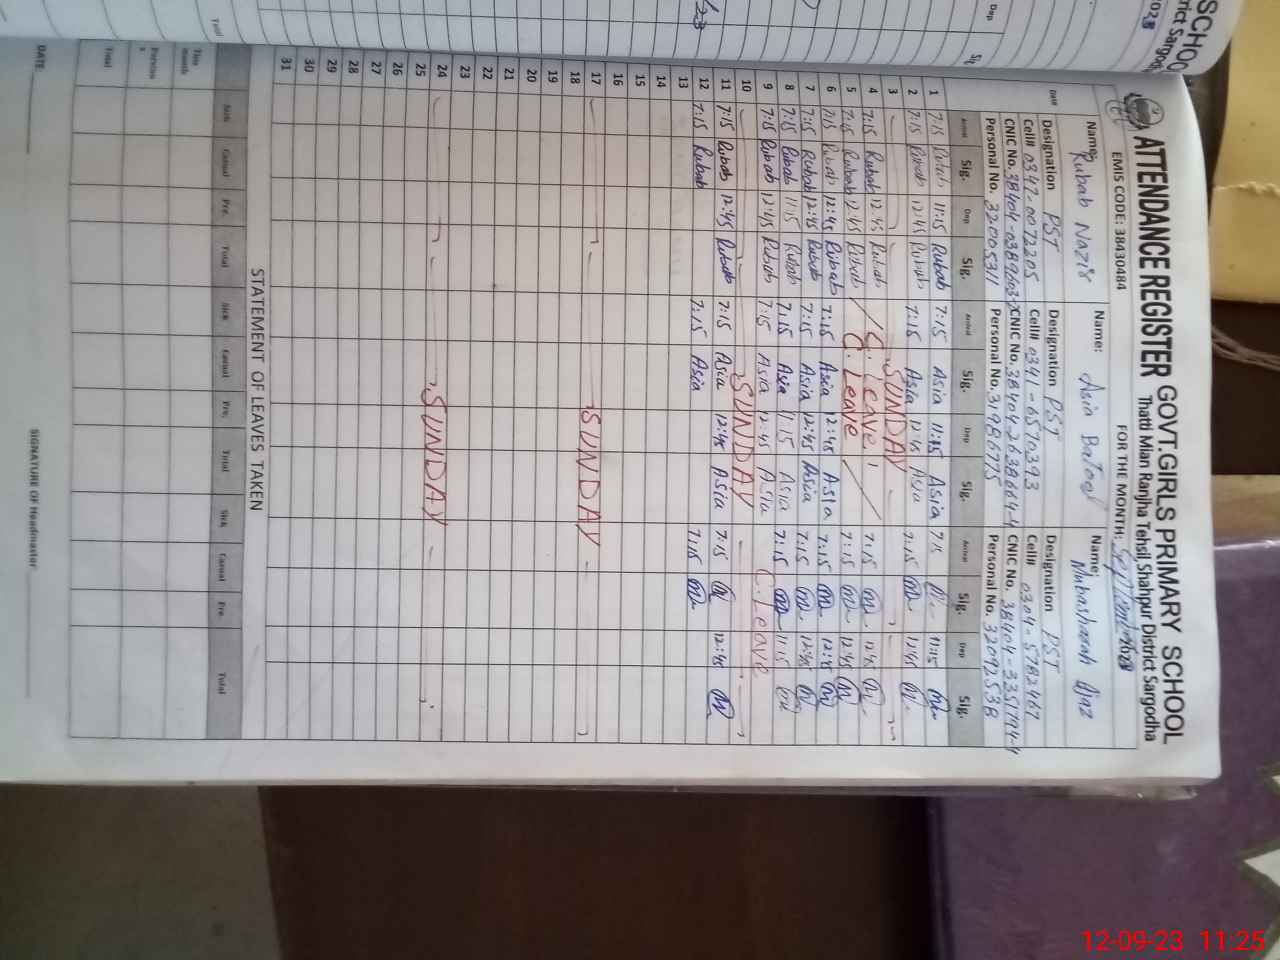 ATTENDANCE REGISTER GOVT.GIRLS PRIMARY SCHOOL
Thatti Mian Ranjha Tehsil Shahpur District Sargodha
EMIS CODE: 38430484 FOR THE MONTH: September 2023
Name: Rubab Nazir Name: Asia Batool Name: Mubasharah Ajaz
Designation PST Designation PST Designation PST
Cell# 0347-0072205 Cell# 0341-6570393 Cell# 0304-5782467
CNIC No. 38404-0389603- CNIC No. 38404-2638664-4 CNIC No. 38404-3351794-4
Personal No. 32005311 Personal No. 31986775 Personal No. 32092538
Date Arrival Sig. Dep Sig. Arrival Sig. Dep Sig. Arrival Sig. Dep Sig.
1 7:15 Rubab 11:15 Rubab 7:15 Asia 11:15 Asia 7:15 11:15
2 7:15 Rubab 12:45 Rubab 7:15 Asia 12:45 Asia 7:15 12:45
3 SUNDAY
4 7:15 Rubab 12:45 Rubab C. Leave 7:15 12:45
5 7:15 Rubab 12:45 Rubab C. Leave 7:15 12:45
6 7:15 Rubab 12:45 Rubab 7:15 Asia 12:45 Asia 7:15 12:45
7 7:15 Rubab 12:45 Rubab 7:15 Asia 12:45 Asia 7:15 12:45
8 7:15 Rubab 11:15 Rubab 7:15 Asia 11:15 Asia 7:15 11:15
9 7:15 Rubab 12:45 Rubab 7:15 Asia 12:45 Asia C. Leave
10 SUNDAY
11 7:15 Rubab 12:45 Rubab 7:15 Asia 12:45 Asia 7:15 12:45
12 7:15 Rubab 7:15 Asia 7:15
13
14
15
16
17 SUNDAY
18
19
20
21
22
23
24 SUNDAY
25
26
27
28
29
30
31
STATEMENT OF LEAVES TAKEN
Sick Casual Pre. Total Sick Casual Pre. Total Sick Casual Pre. Total
This month
Previous
Total
DATE: SIGNATURE OF Headmaster
12-09-23 11:25